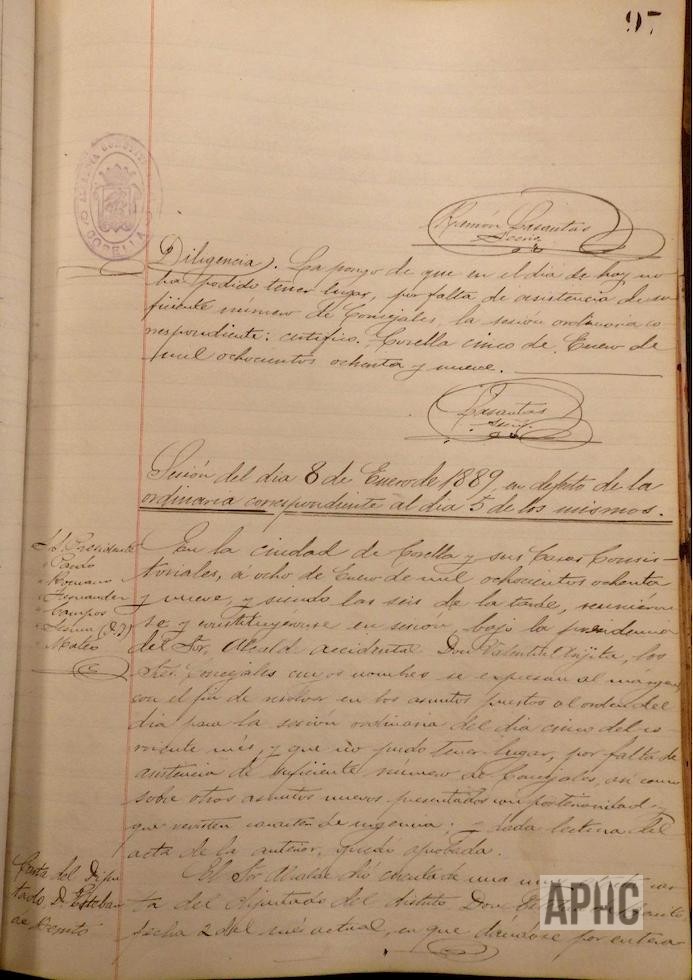 97
ALCALDIA CONSTIT
CORELLA
Ramón Lasantas
Diligencia. La pongo de que en el dia de hoy, no
ha podido tener lugar, por falta de asistencia de su
ficiente número de Concejales, la sesión ordinaria co
rrespondiente: certifico. Corella cinco de Enero de
mil ochocientos ochenta y nueve.
Lasantas
Sesión del dia 8 de Enero de 1889 en defecto de la
ordinaria correspondiente al dia 5 de los mismos.
Sr. Presidente
" Romano
" Hernandez
" Campos
" Mateo
En la ciudad de Corella y sus Casas Consis-
toriales, á ocho de Enero de mil ochocientos ochenta
y nueve, y siendo las seis de la tarde, reunieron
se y constituyéronse en sesión, bajo la presidencia
del Sor. Alcalde accidental Don Valentin, los
Sres. Concejales cuyos nombres se expresan al margen,
con el fin de resolver en los asuntos puestos al orden del
dia para la sesión ordinaria del dia cinco del co
rriente més, y que no pudo tener lugar, por falta de
asistencia de suficiente número de Concejales, asi como
sobre otros asuntos nuevos presentados con posterioridad y
que revisten caracter de urgencia; y dada lectura del
acta de la anterior, quedó aprobada.
Carta del Dipu
tado D. Esteban
de Benito
El Sor Alcalde dió cuenta de una car
ta del Diputado del distrito Don Benito
fecha 2 del més actual, en que dándose por entera
APHC